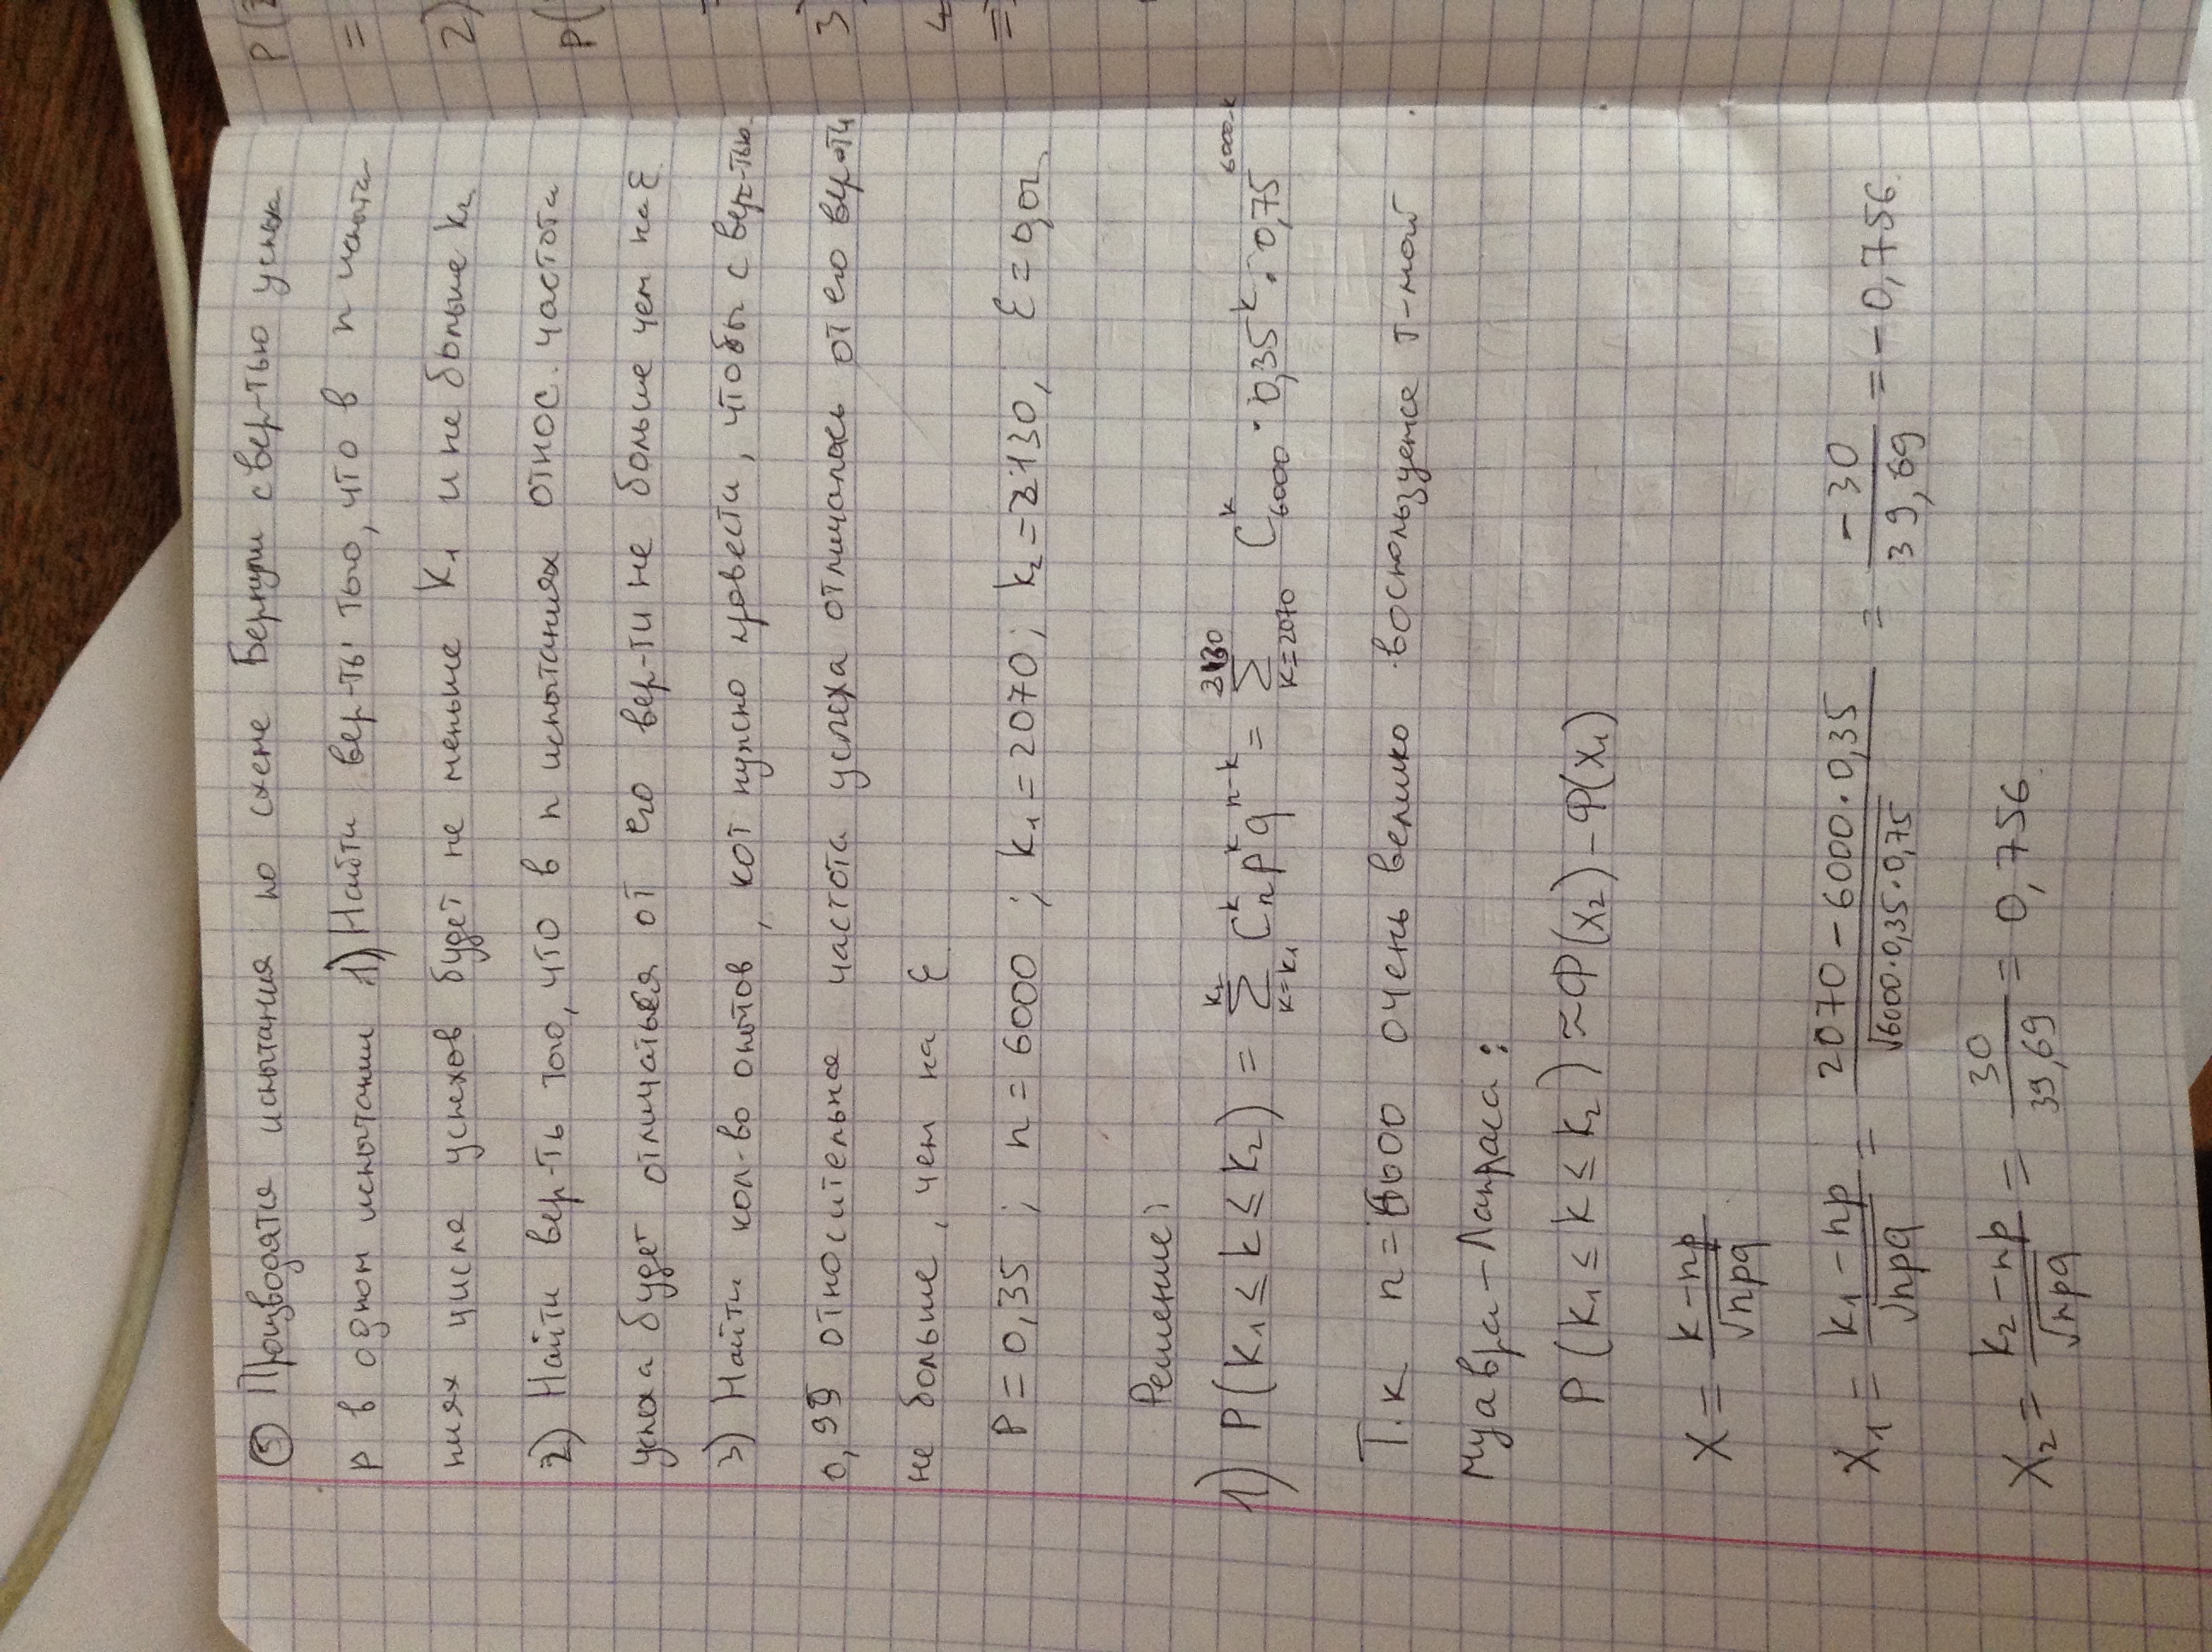 ⑤ Производятся испытания по схеме Бернулли с вер-тью успеха
p в одном испытании 1) Найти вер-ть того, что в n испыта
ниях число успехов будет не меньше k₁ и не больше k₂
2) Найти вер-ть того, что в n испытаниях относ. частота
успеха будет отличаться от его вер-ти не больше чем на ε
3) Найти кол-во опытов, кот нужно провести, чтобы с вер-тью
0,99 относительная частота успеха отличалась от его вер-ти
не больше, чем на ε
P = 0,35 ; n = 6000 ; k₁ = 2070; k₂ = 2130, ε = 0,02
Решение:
1) P(k₁ ≤ k ≤ k₂) = ∑_{k=k₁}^{k₂} C_n^k p^k q^{n-k} = ∑_{k=2070}^{2130} C_{6000}^k · 0,35^k · 0,75^{6000-k}
Т.к n = 6000 очень велико воспользуемся т-мой
Муавра-Лапласа:
P(k₁ ≤ k ≤ k₂) ≈ Φ(x₂) - Φ(x₁)
X = (k - np)/√npq
X₁ = (k₁ - np)/√npq = (2070 - 6000·0,35)/√6000·0,35·0,75 = -30/39,69 = -0,756.
X₂ = (k₂ - np)/√npq = 30/39,69 = 0,756.
P(
=
2)
P(
3)
4
=